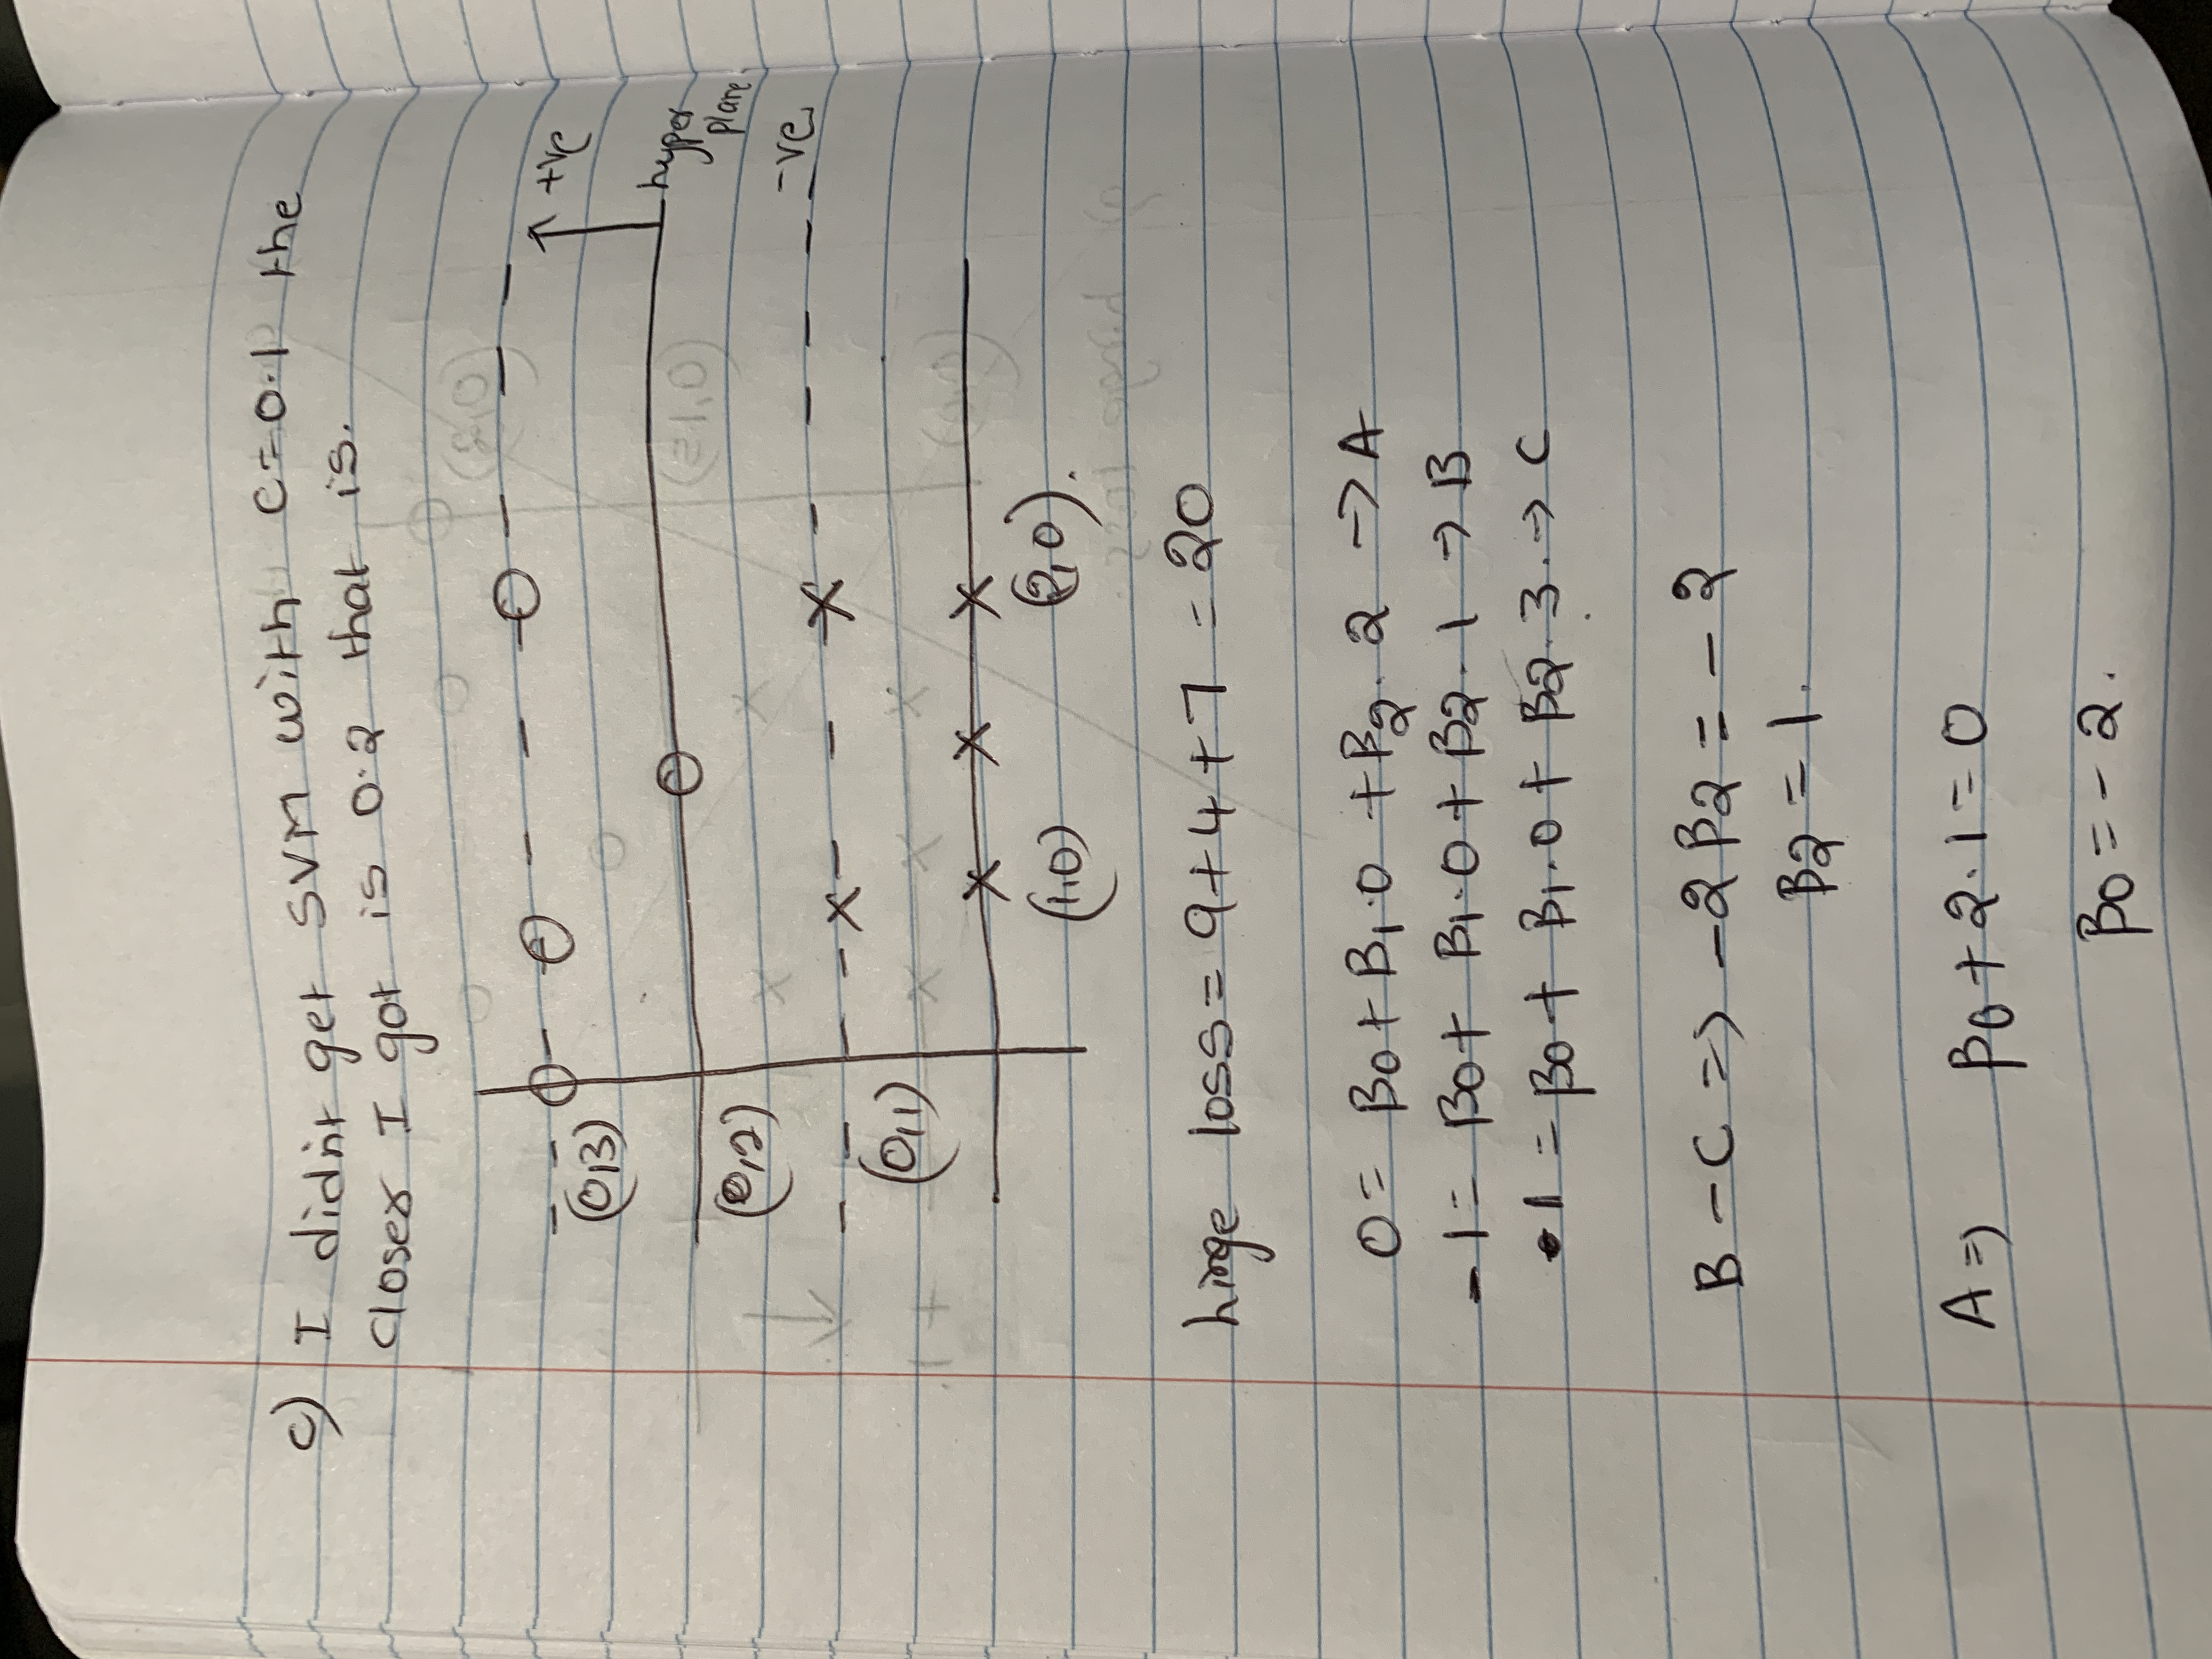 c) I didn't get SVM with C=0.1 the
closer I got is 0.2 that is.
(0,3)
+ve
hyper
plane
(0,2)
-ve
(0,1)
(1,0)
(2,0).
hinge loss = 9+4+7 = 20
0 = β0 + β1.0 + β2.2 → A
-1 = β0 + β1.0 + β2.1 → B
1 = β0 + β1.0 + β2.3. → C
B - C => -2β2 = -2
β2 = 1.
A => β0 + 2.1 = 0
β0 = -2.